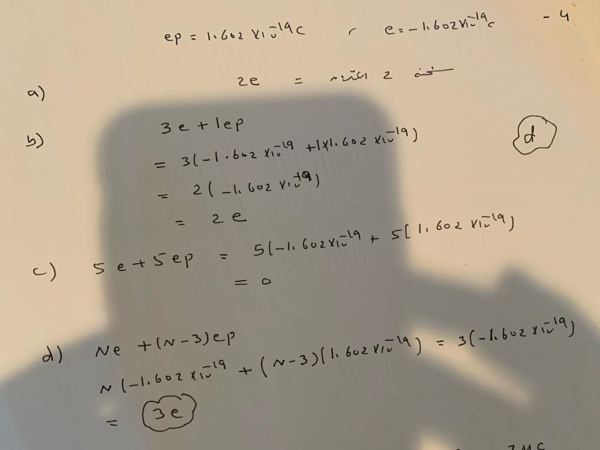 ep = 1.602 x10^-19 C , e = -1.602 x10^-19 C - 4
a) 2e = 2 شحنة
b) 3e + 1ep
= 3(-1.602 x10^-19 + 1x1.602 x10^-19)
= 2(-1.602 x10^-19)
= 2e
d
c) 5e + 5ep = 5(-1.602 x10^-19 + 5[1.602 x10^-19)
= 0
d) Ne + (N-3)ep
N(-1.602 x10^-19 + (N-3)[1.602 x10^-19) = 3(-1.602 x10^-19)
= 3e